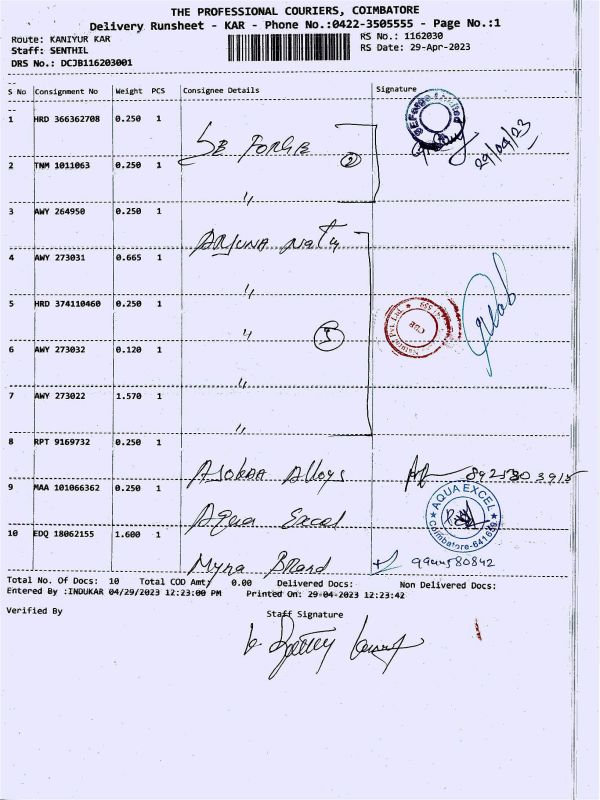 THE PROFESSIONAL COURIERS, COIMBATORE
Delivery Runsheet - KAR - Phone No.:0422-3505555 - Page No.:1
Route: KANIYUR KAR
RS No.: 1162030
Staff: SENTHIL
RS Date: 29-Apr-2023
DRS No.: DCJB116203001
S No Consignment No Weight PCS Consignee Details Signature
1 HRD 366362708 0.250 1
SE FORGE
SE Forge Limited
29/04/23
2 TNM 1011063 0.250 1
2
"
3 AWY 264950 0.250 1
ARJUNA Natu
4 AWY 273031 0.665 1
"
5 HRD 374110460 0.250 1
"
5
6 AWY 273032 0.120 1
"
7 AWY 273022 1.570 1
"
8 RPT 9169732 0.250 1
Asokaa Alloys
9 MAA 101066362 0.250 1
Aqua Excel
AQUA EXCEL
Coimbatore-641659
10 EDQ 18062155 1.600 1
Myna Brand
9944580842
Total No. Of Docs: 10 Total COD Amt/ 0.00 Delivered Docs: Non Delivered Docs:
Entered By :INDUKAR 04/29/2023 12:23:00 PM Printed On: 29-04-2023 12:23:42
Verified By
Staff Signature